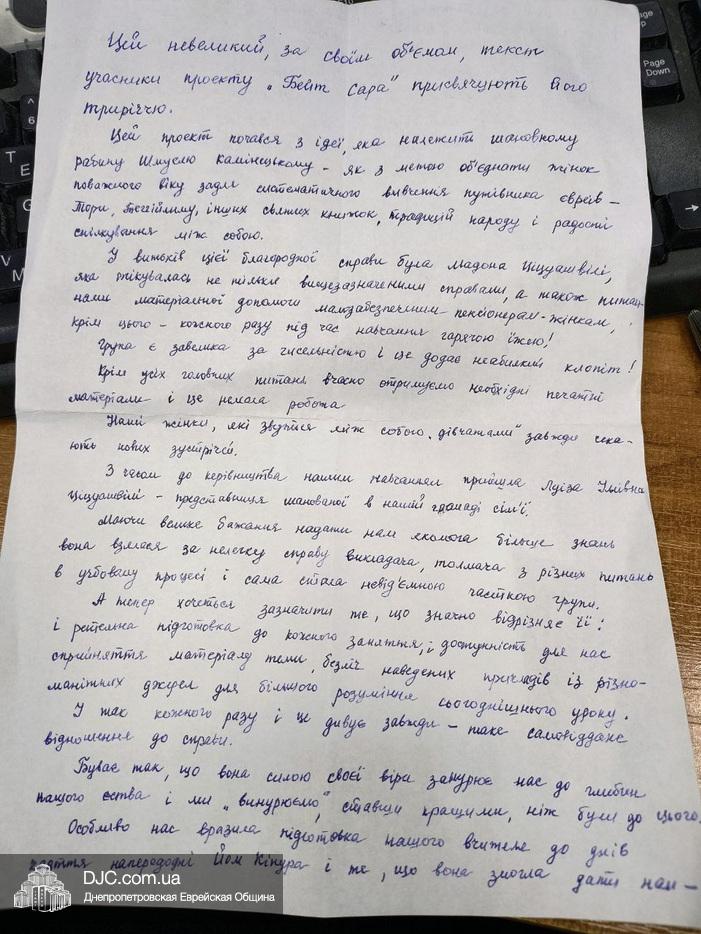 Цей невеликий, за своїм об'ємом, текст
учасники проєкту „Бейт Сара" присвячують його
триріччю.
Цей проєкт почався з ідеї, яка належить шановному
рабину Шмуелю Камінєцькому – як з метою об'єднати жінок
поважного віку задля систематичного вивчення путівника євреїв –
Тори, Тегілиму, інших святих книжок, традицій народу і радості
спілкування між собою.
У витоків цієї благородної справи була Мадона Ціцуашвілі,
яка опікувалась не тільки вищезазначеними справами, а також питан-
нями матеріальної допомоги малозабезпеченим пенсіонерам-жінкам,
крім цього – кожного разу під час навчання гарячою їжею!
Група є завелика за чисельністю і це додає неабиякий клопіт!
Крім усіх головних питань вчасно отримуємо необхідні печатні
матеріали і це немала робота
Наші жінки, які звуться між собою „дівчатами" завжди чека-
ють нових зустрічей.
З часом до керівництва нашим навчанням прийшла Луїза
Ціцуашвілі – представниця шанованої в нашій громаді сім'ї.
Маючи велике бажання надати нам якомога більше знань
вона взялася за нелегку справу викладача, толмача з різних питань
в учбовому процесі і сама стала невід'ємною часткою групи.
А тепер хочеться зазначити те, що значно відрізняє її:
і ретельна підготовка до кожного заняття, і доступність для нас
сприйняття матеріалу теми, безліч наведених прикладів із різно-
манітних джерел для більшого розуміння сьогоднішнього уроку.
У так кожного разу і це дивує завжди – таке самовіддане
відношення до справи.
Буває так, що вона силою своєї віри занурює нас до глибин
нашого єства і ми „винурюємо", ставши кращими, ніж були до цього.
Особливо нас вразила підготовка нашого вчителя до днів
напередодні Йом Кіпура і те, що вона змогла дати нам –
DJC.com.ua
Днепропетровская Еврейская Община
Page
Down